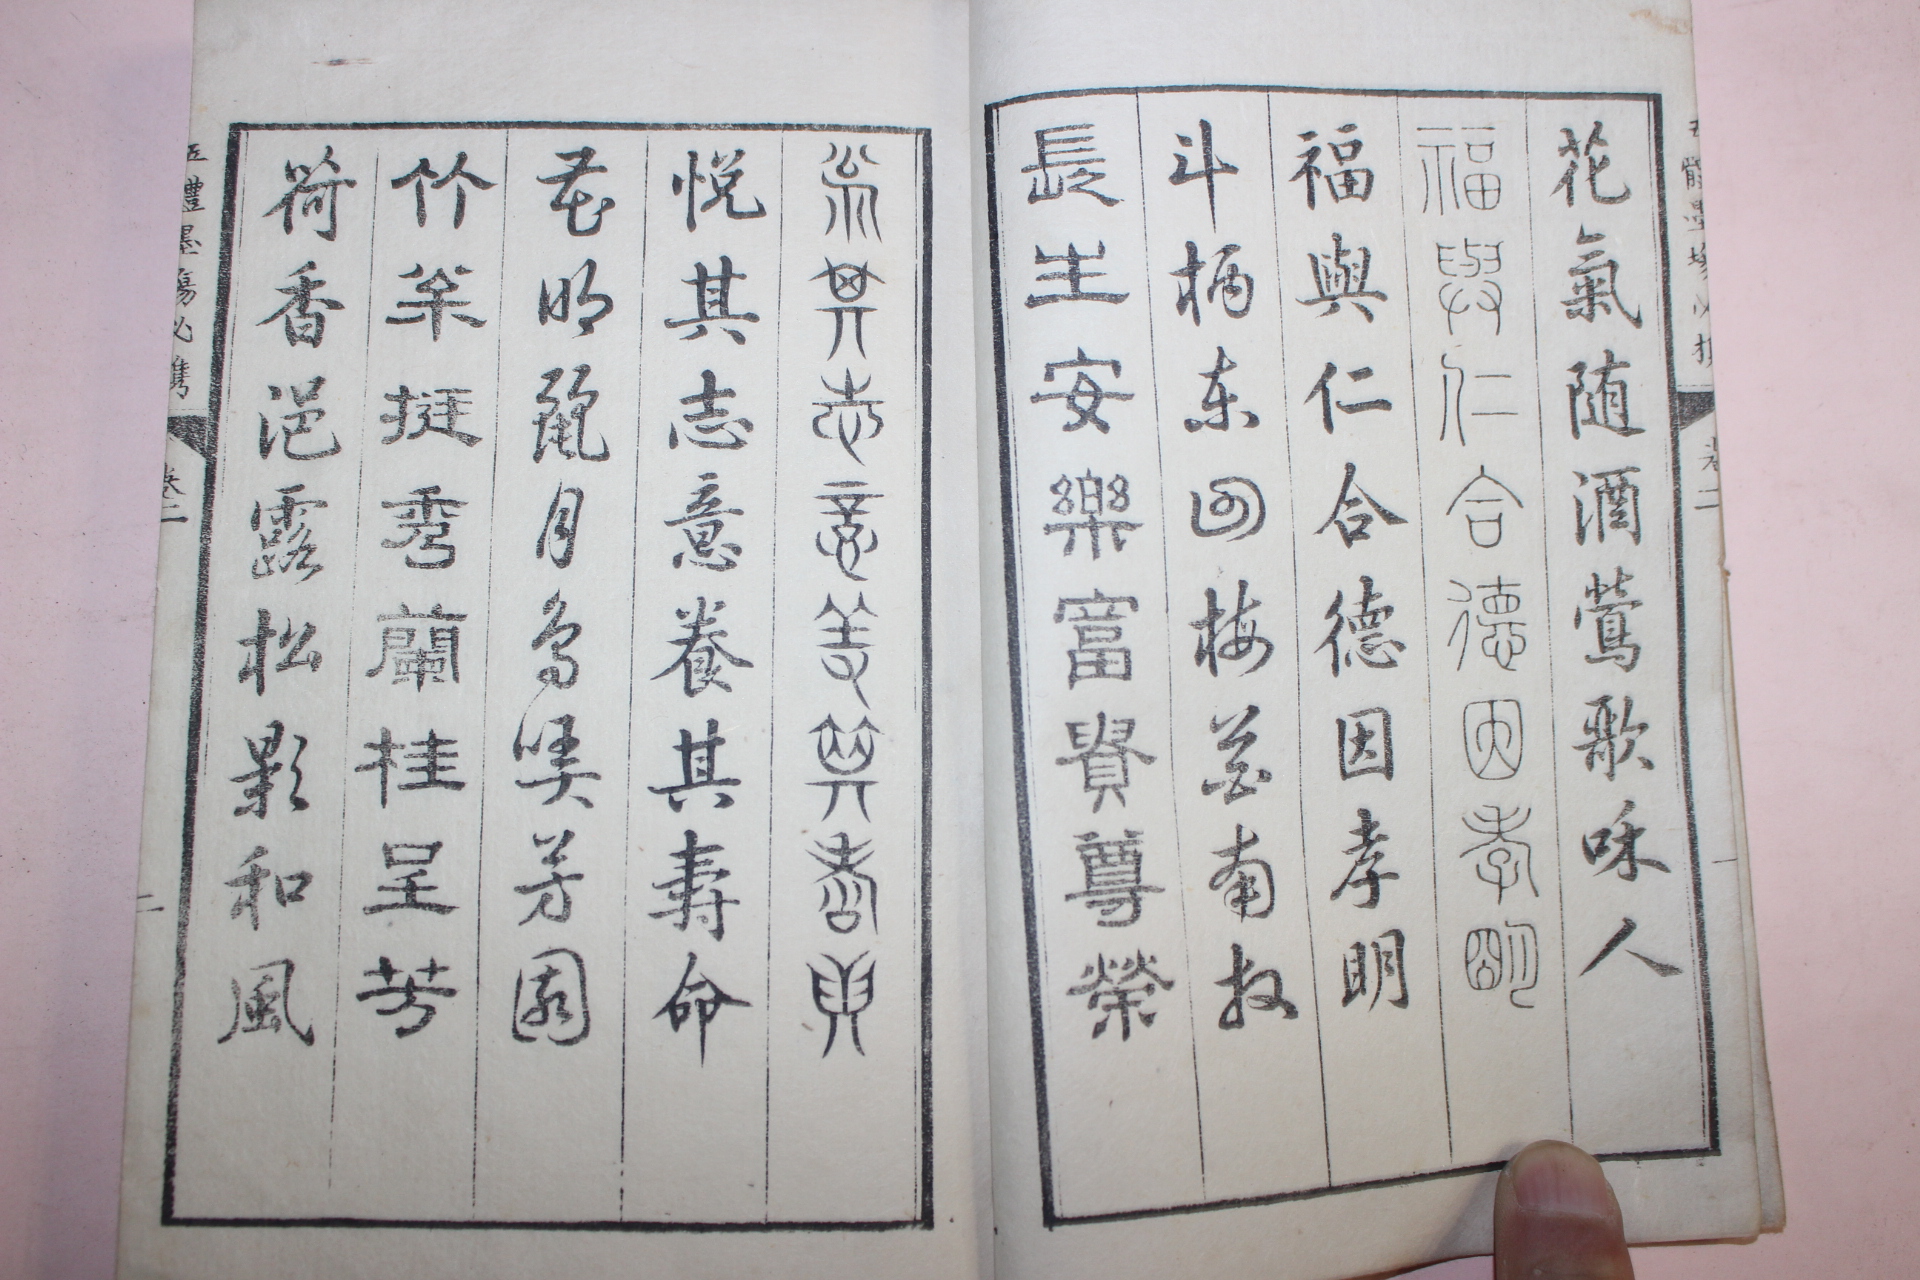 五體墨場必携 卷二 一
花氣随酒鶯歌咊人
福與仁合德因孝明
福與仁合德因孝明
斗柄東回梅南
長生安樂富貴尊榮
悅其志意養其壽命
悦其志意養其壽命
花明麗月鳥芳園
竹挺秀蘭桂呈芳
荷香浥露松影和風
五體墨場必携 卷二 二